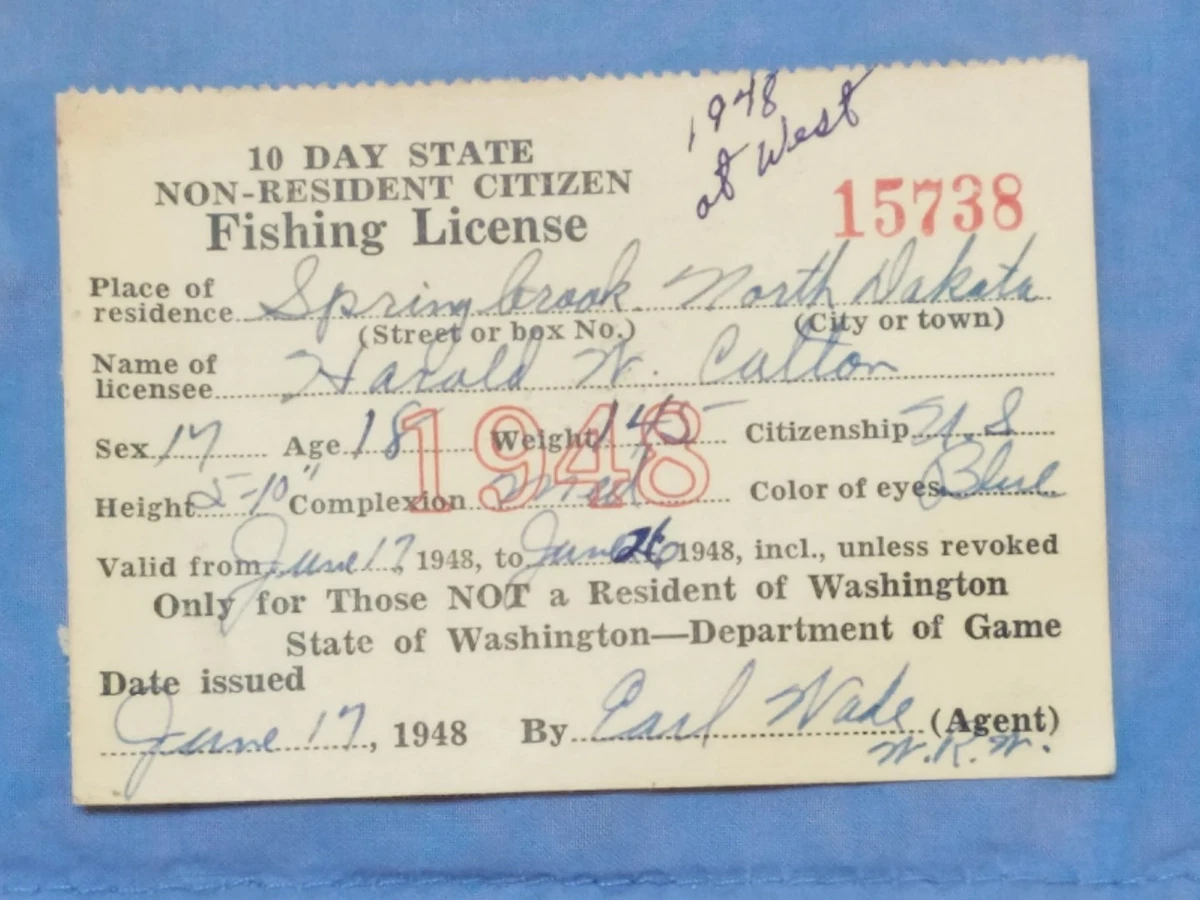 1948
at West
10 DAY STATE
NON-RESIDENT CITIZEN
Fishing License
15738
Place of residence Springbrook North Dakota
(Street or box No.) (City or town)
Name of licensee Harold W. Calton
Sex M Age 18 Weight 145 Citizenship U S
1948
Height 5-10" Complexion Med Color of eyes Blue
Valid from June 17, 1948, to June 26 1948, incl., unless revoked
Only for Those NOT a Resident of Washington
State of Washington—Department of Game
Date issued
June 17, 1948 By Earl Wade (Agent)
W.R.W.